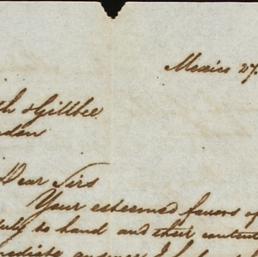 Mexico 27
th & Gillbee
ndon
Dear Sirs
Your esteemed favors of
duly to hand and their content
mediate answer I